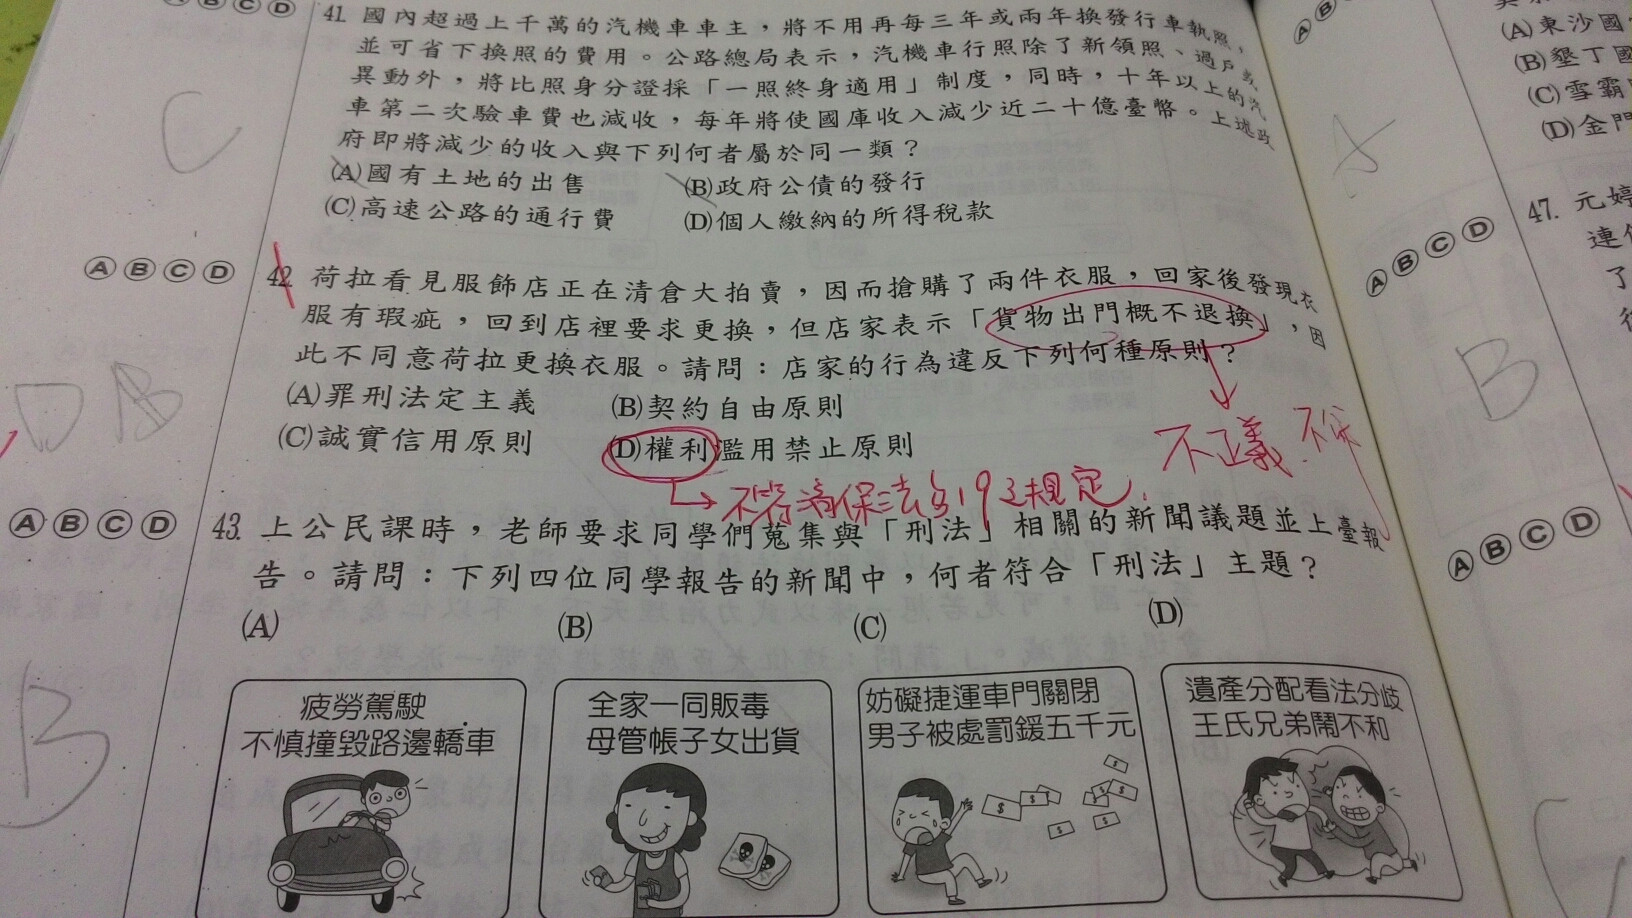 Ⓐ Ⓑ Ⓒ Ⓓ
41. 國內超過上千萬的汽機車車主，將不用再每三年或兩年換發行車執照，
並可省下換照的費用。公路總局表示，汽機車行照除了新領照、過戶或
異動外，將比照身分證採「一照終身適用」制度，同時，十年以上的汽
車第二次驗車費也減收，每年將使國庫收入減少近二十億臺幣。上述政
府即將減少的收入與下列何者屬於同一類？
(A)國有土地的出售
(B)政府公債的發行
(C)高速公路的通行費
(D)個人繳納的所得稅款
C
Ⓐ Ⓑ Ⓒ Ⓓ
42. 荷拉看見服飾店正在清倉大拍賣，因而搶購了兩件衣服，回家後發現衣
服有瑕疵，回到店裡要求更換，但店家表示「貨物出門概不退換」，因
此不同意荷拉更換衣服。請問：店家的行為違反下列何種原則？
(A)罪刑法定主義
(B)契約自由原則
(C)誠實信用原則
(D)權利濫用禁止原則
D B
不正義
不符消保法§19之規定.
Ⓐ Ⓑ Ⓒ Ⓓ
43. 上公民課時，老師要求同學們蒐集與「刑法」相關的新聞議題並上臺報
告。請問：下列四位同學報告的新聞中，何者符合「刑法」主題？
(A)
(B)
(C)
(D)
B
疲勞駕駛
不慎撞毀路邊轎車
全家一同販毒
母管帳子女出貨
妨礙捷運車門關閉
男子被處罰鍰五千元
遺產分配看法分歧
王氏兄弟鬧不和
Ⓐ Ⓑ
(A)東沙國
(B)墾丁國
(C)雪霸
(D)金門
A
Ⓐ Ⓑ Ⓒ Ⓓ
47. 元婷
B
Ⓐ Ⓑ Ⓒ Ⓓ
C